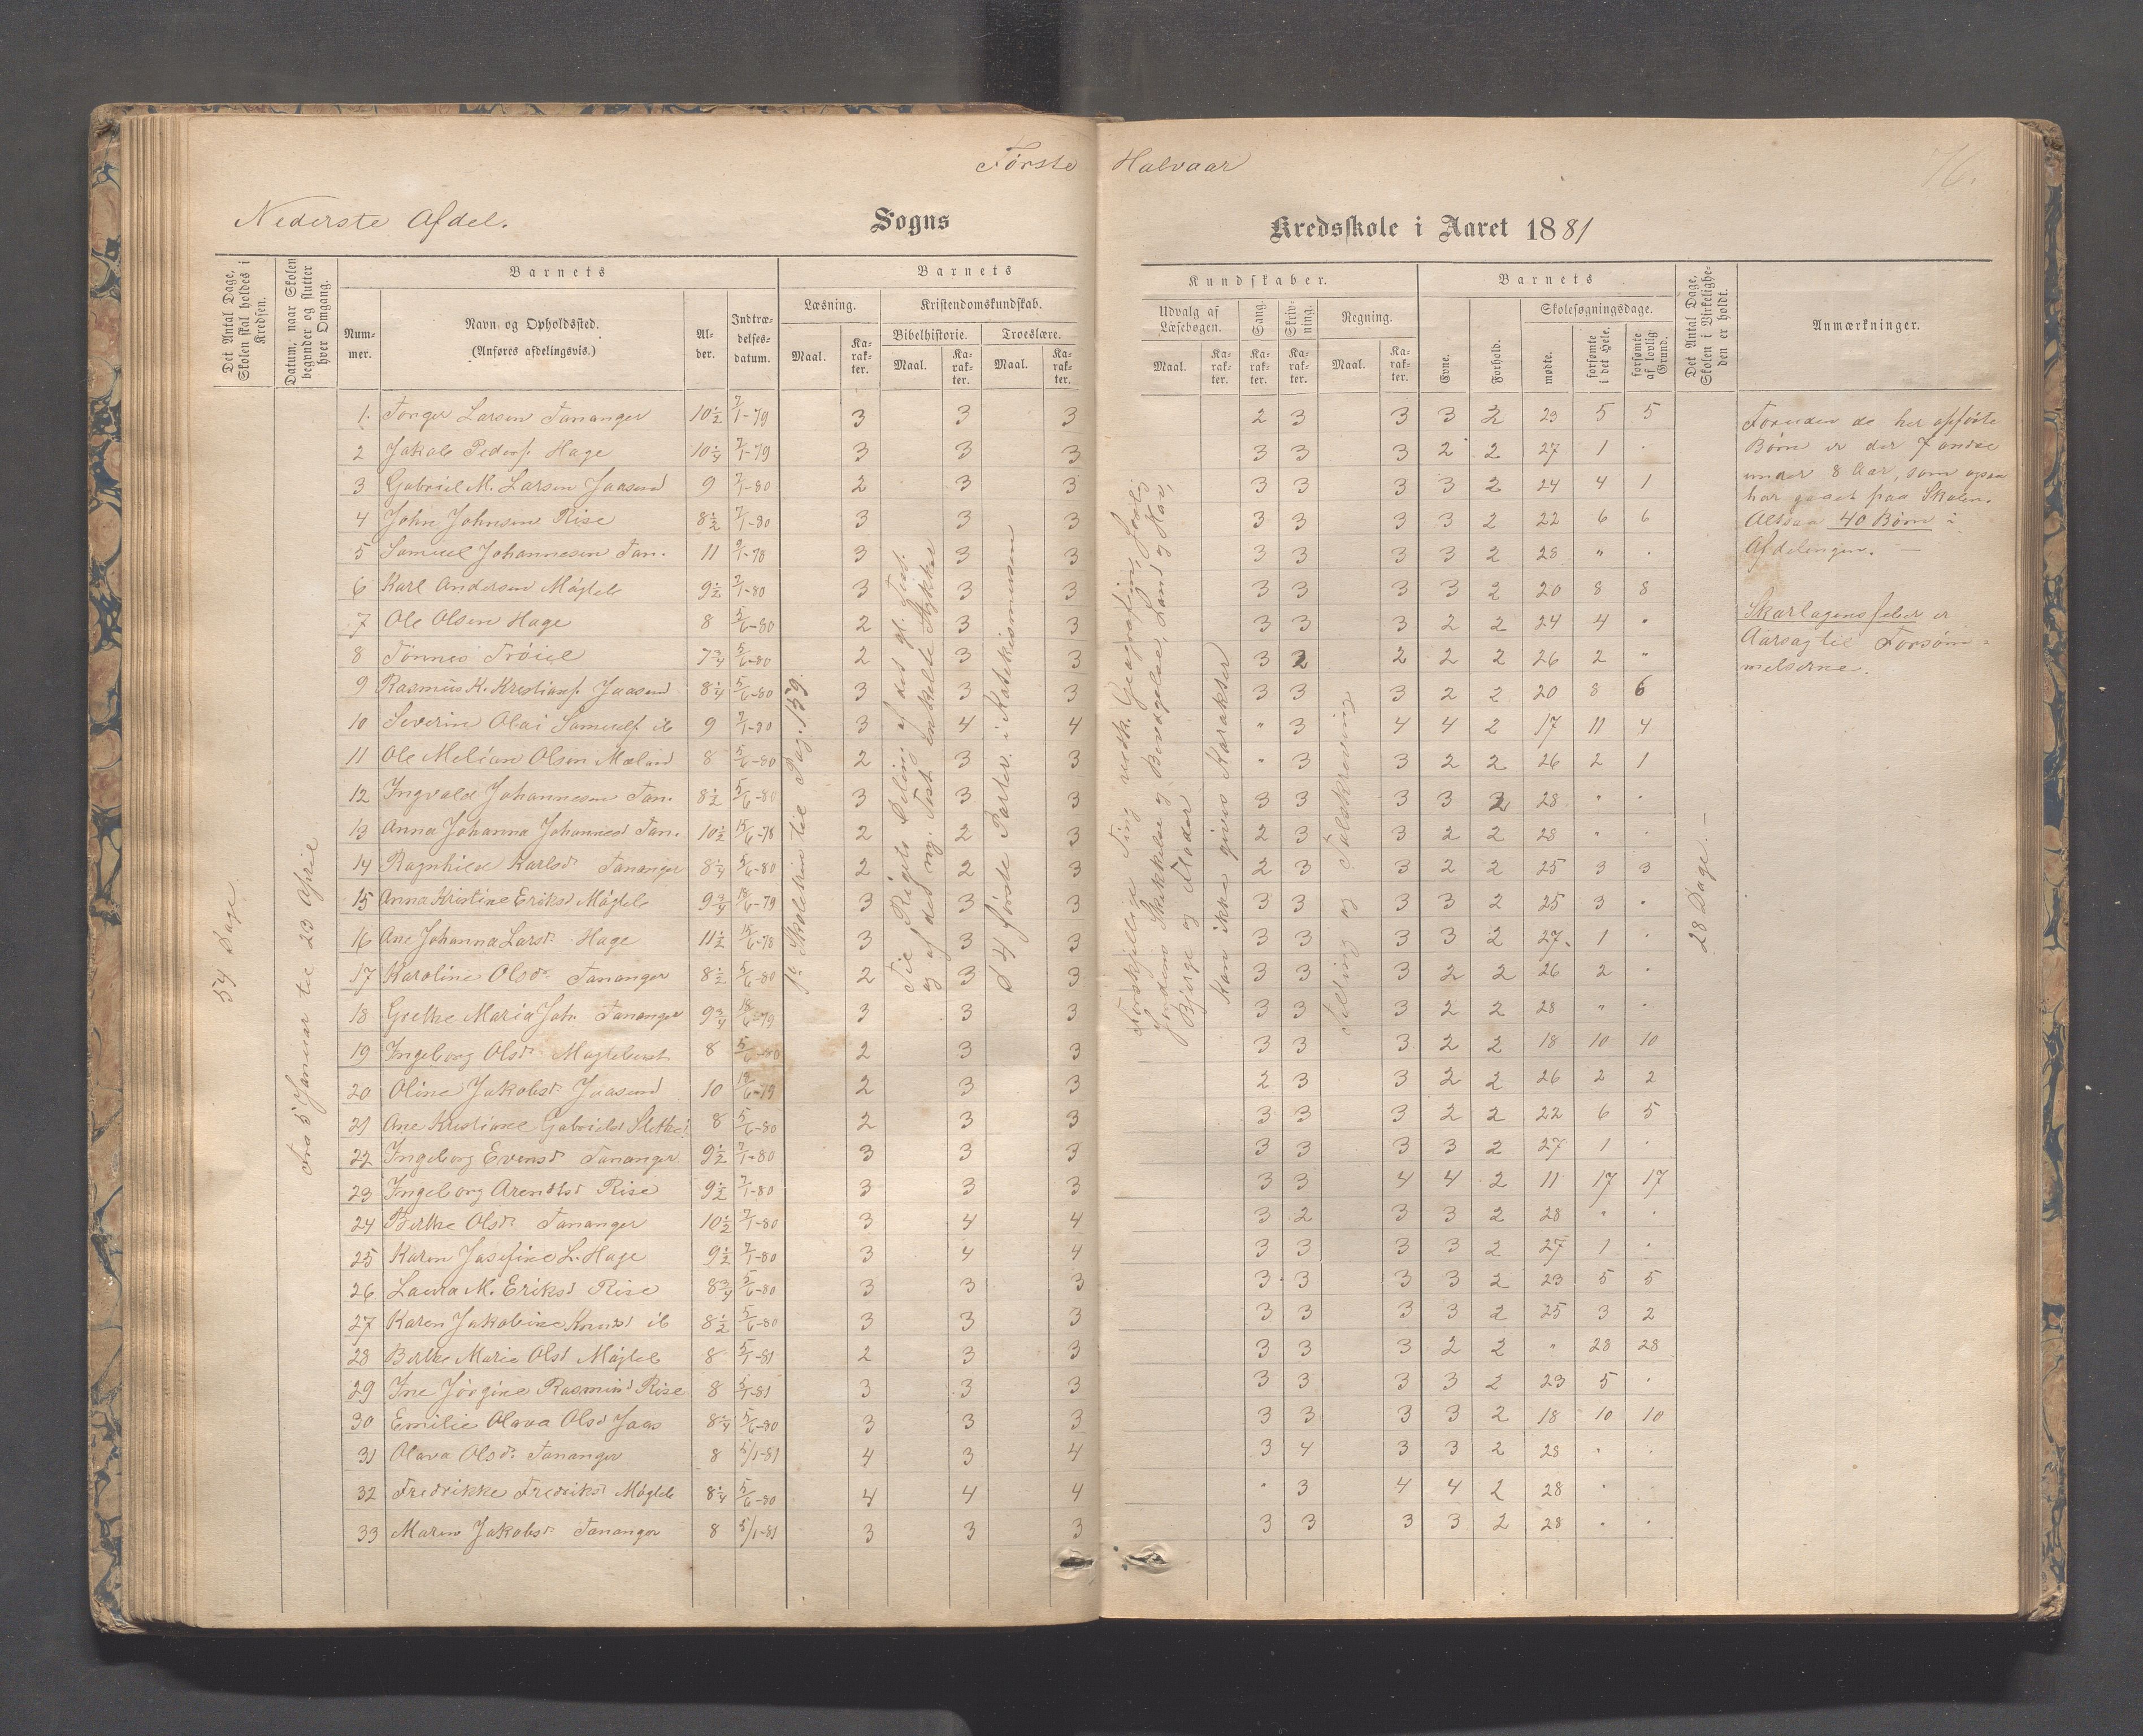 Første Halvaar
76.
Nederste Afdel. Sogns Kredsskole i Aaret 1881
Det Antal Dage, Skolen skal holdes i Kredsen.
Datum, naar Skolen begynder og slutter hver Omgang.
Barnets
Nummer.
Navn og Opholdssted.
(Anføres afdelingsvis.)
Alder.
Indtrædelsesdatum.
Barnets
Læsning.
Maal.
Karakter.
Kristendomskundskab.
Bibelhistorie.
Maal.
Karakter.
Troeslære.
Maal.
Karakter.
Kundskaber.
Udvalg af Læsebogen.
Maal.
Karakter.
Sang.
Karakter.
Skrivning.
Karakter.
Regning.
Maal.
Karakter.
Barnets
Evne.
Forhold.
Skolesøgningsdage.
mødte.
forsømte i det Hele.
forsømte af lovlig Grund.
Det Antal Dage, Skolen i Virkeligheden er holdt.
Anmærkninger.
54 Dage
Fra 5 Januar til 23 April
Skolekin til Pag. 159.
Til Rigets Deling af det gl. Test.
og af det ny. Test enkelte Stykker
d 4 første Parter i Katekismusen
Forskjellige Ting vedk. Geografien, Jordens Skikkelse og Bevægelse, Land og Hav, Bjerge og Floder
Kan ikke gives Karakter
Telling og Talskrivning
28 Dage. —
1. Tonger Larsen Tananger 10½ 7/1-79 3 3 3 2 3 3 3 2 23 5 5
2 Jakob Peders. Hage 10¼ 7/1-79 3 3 3 3 3 3 2 2 27 1 .
3 Gabriel M. Larsen Jaasund 9 7/1-80 2 3 3 3 3 3 3 2 24 4 1
4 John Johnsen Rise 8½ 7/1-80 3 3 3 3 3 3 3 2 22 6 6
5 Samuel Johannesen Tan. 11 9/1-78 3 3 3 3 3 3 3 2 28 " .
6 Karl Andersen Mågleb 9½ 7/1-80 3 3 3 3 3 3 3 2 20 8 8
7 Ole Olsen Hage 8 5/6-80 2 3 3 3 3 3 2 2 24 4 "
8 Tønnes Trøiel 7¾ 5/6-80 2 3 3 3 2 2 2 2 26 2 "
9 Rasmus K. Kristians. Jaasund 8¼ 5/6-80 3 3 3 3 3 3 2 2 20 8 6
10 Severin Olai Samuels. ib 9 7/1-80 3 4 4 " 3 4 4 2 17 11 4
11 Ole Melian Olsen Mæland 8 5/6-80 2 3 3 " 3 3 2 2 26 2 1
12 Ingvald Johannesen Tan. 8½ 5/6-80 3 3 3 3 3 3 3 2 28 " .
13 Anna Johanna Johannesd Tan. 10½ 15/6-78 2 2 3 2 3 3 2 2 28 " .
14 Ragnhild Karlsd. Tananger 8¼ 5/6-80 2 2 3 2 3 3 2 2 25 3 3
15 Anna Kristine Eriksd Mågleb 9¾ 18/6-79 3 3 3 3 3 3 3 2 25 3 .
16 Ane Johanna Larsd. Hage 11½ 15/6-78 3 3 3 3 3 3 3 2 27. 1 .
17 Karoline Olsd. Tananger 8½ 5/6-80 2 3 3 3 3 3 2 2 26 2 .
18 Grethe Maria Joh. Tananger 9¾ 18/6-79 3 3 3 3 3 3 2 2 28 " .
19 Ingeborg Olsd. 8 5/6-80 2 3 3 3 3 3 2 2 18 10 10
20 Oline Jakobsd. Jaasund 10 18/6-79 2 3 3 2 3 3 2 2 26 2 2
21 Ane Kristiane Gabrielsd 8 5/6-80 2 3 3 3 3 3 2 2 22 6 5
22 Ingeborg Evensd Tananger 9½ 7/1-80 3 3 3 3 3 3 3 2 27 1 .
23 Ingeborg Arendtsd Rise 9½ 7/1-80 3 3 3 3 3 4 4 2 11 17 17
24 Berthe Olsd. Tananger 10½ 7/1-80 3 4 4 3 2 3 3 2 28 " .
25 Karen Josefine L. Hage 9½ 7/1-80 3 4 4 3 3 3 3 2 27 1 .
26 Laura M. Eriksd Rise 8¾ 5/6-80 3 3 3 3 3 3 3 2 23 5 5
27 Karen Jakobine Knutsd ib 8½ 5/6-80 3 3 3 3 3 3 3 2 25 3 2
28 Berthe Marie Olsd Mågleb 8 5/1-81 2 3 3 3 3 3 2 2 " 28 28
29 Ine Jørgine Rasmusd Rise 8 5/1-81 3 3 3 3 3 3 3 2 23 5 .
30 Emilie Olava Olsd Jaas 8¼ 5/6-80 3 3 3 3 3 3 3 2 18 10 10
31 Olava Olsd. Tananger 8 5/1-81 4 3 4 3 4 3 3 2 28 " .
32 Fredrikke Fredriksd Mågleb 8¼ 5/6-80 4 4 4 " 3 4 4 2 28 . .
33 Maren Jakobsd. Tananger 8 5/1-81 3 3 3 3 3 3 3 2 28 . .
Foruden de her opførte
Børn er der 7 andre
under 8 Aar, som ogsaa
har gaaet paa Skolen.
Altsaa 40 Børn i
Afdelingen. —
Skarlagensfeber er
Aarsag til Forsøm=
melserne.